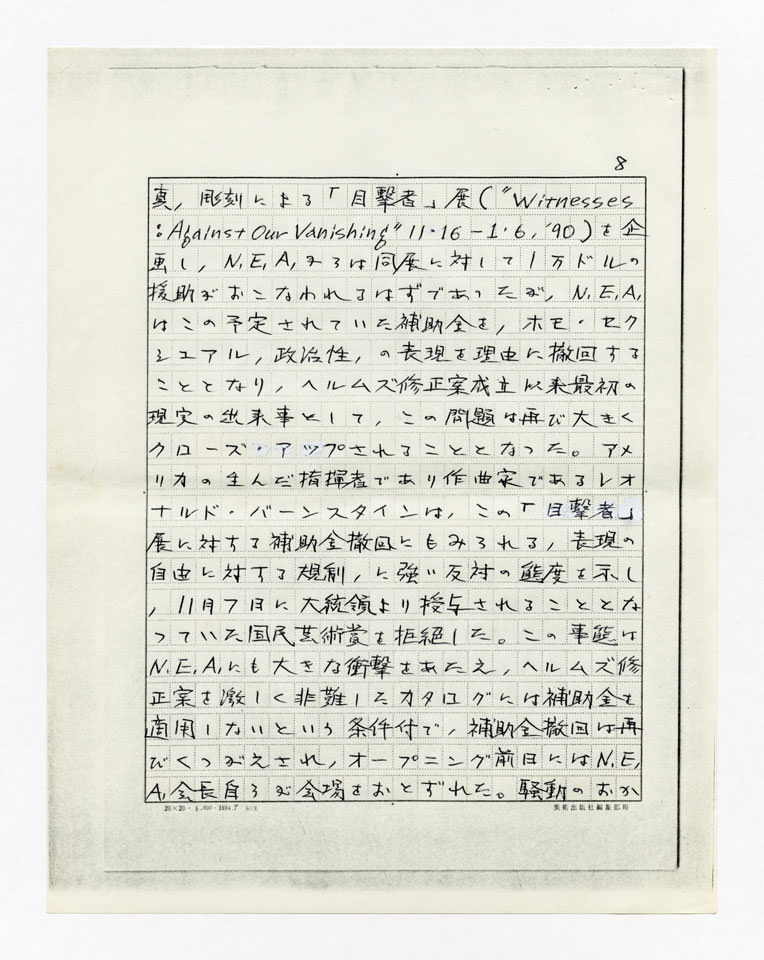 8
真，彫刻による「目撃者」展（"Witnesses
:Against Our Vanishing" 11・16－1・6，'90）を企
画し，N.E.A.みろは同展に対して1万ドルの
援助がおこなわれるはずであったが，N.E.A.
はこの予定されていた補助金を，ホモ・セク
シュアル，政治性，の表現を理由に撤回する
こととなり，ヘルムズ修正案成立以来最初の
現実の出来事として，この問題は再び大きく
クローズ・アップされることとなった。アメ
リカの生んだ指揮者であり作曲家であるレオ
ナルド・バーンスタインは，この「目撃者」
展に対する補助金撤回にもみられる，表現の
自由に対する規制，に強い反対の態度を示し
，11月7日に大統領より授与されることとな
っていた国民芸術賞を拒絶した。この事態は
N.E.A.にも大きな衝撃をあたえ，ヘルムズ修
正案を激しく非難したカタログには補助金を
適用しないという条件付で，補助金撤回は再
びくつがえされ，オープニング前日にはN.E.
A.会長自らが会場をおとずれた。騒動のおか
20×20
美術出版社編集部用